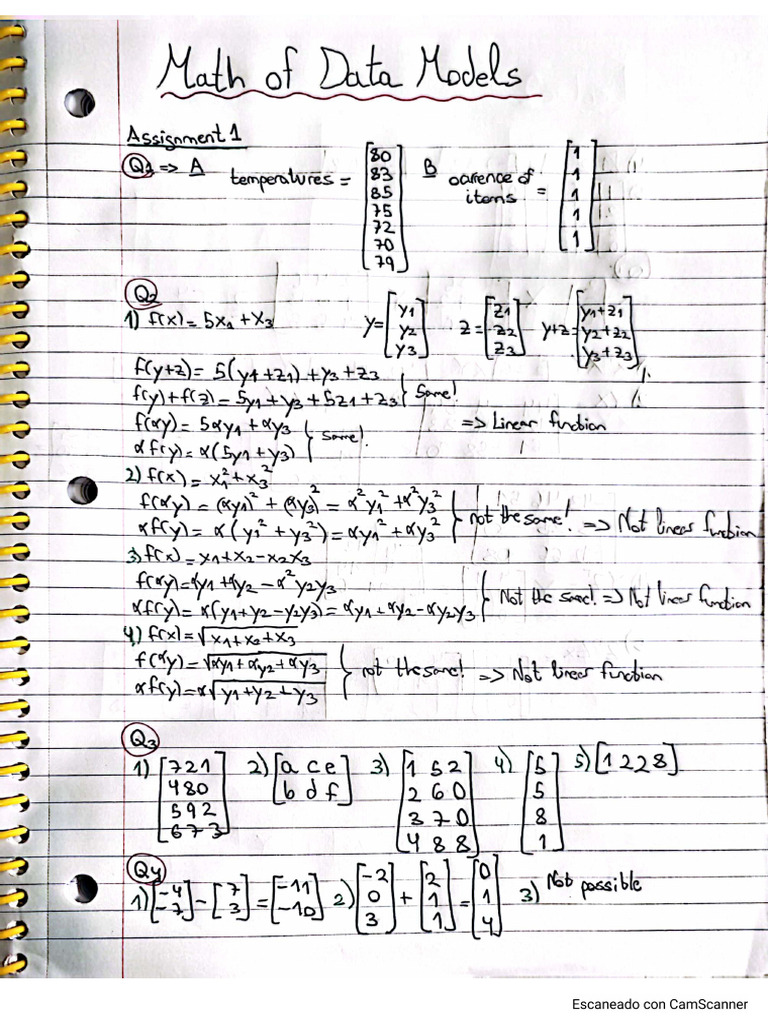 Math of Data Models
Assignment 1
Q1 => A temperatures = [80 83 85 75 72 70 79] B ocurrence of items = [1 1 1 1 1]
Q2
1) f(x) = 5x1 + x3 y = [y1 y2 y3] z = [z1 z2 z3] y+z = [y1+z1 y2+z2 y3+z3]
f(y+z) = 5(y1+z1) + y3 + z3
f(y) + f(z) = 5y1 + y3 + 5z1 + z3 } Same!
f(αy) = 5αy1 + αy3
αf(y) = α(5y1 + y3) } same! => Linear function
2) f(x) = x1² + x3²
f(αy) = (αy1)² + (αy3)² = α²y1² + α²y3²
αf(y) = α(y1² + y3²) = αy1² + αy3² } not the same! => Not linear function
3) f(x) = x1 + x2 - x2x3
f(αy) = αy1 + αy2 - α²y2y3
αf(y) = α(y1 + y2 - y2y3) = αy1 + αy2 - αy2y3 } Not the same! => Not linear function
4) f(x) = √x1 + x2 + x3
f(αy) = √αy1 + αy2 + αy3
αf(y) = α√y1 + y2 + y3 } not the same! => Not linear function
Q3
1) [7 2 1
4 8 0
5 9 2
6 7 3]
2) [a c e
b d f]
3) [1 5 2
2 6 0
3 7 0
4 8 8]
4) [5
5
8
1]
5) [1 2 2 8]
Q4
1) [-4 -7] - [7 3] = [-11 -10] 2) [-2 0 3] + [2 1 1] = [0 1 4] 3) Not possible
Escaneado con CamScanner